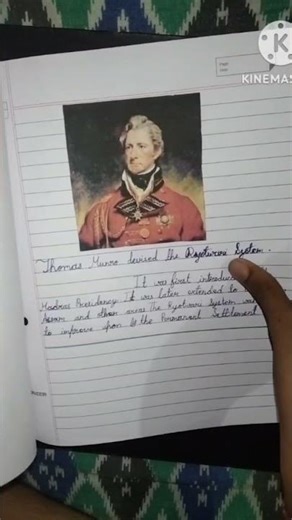 KINEMAS
Thomas Munro levied the Ryotwari System.
It was first introduced
Madras Presidency. It was later extended to
Assam and other areas The Ryotwari System was
to improve upon the Permanent Settlement